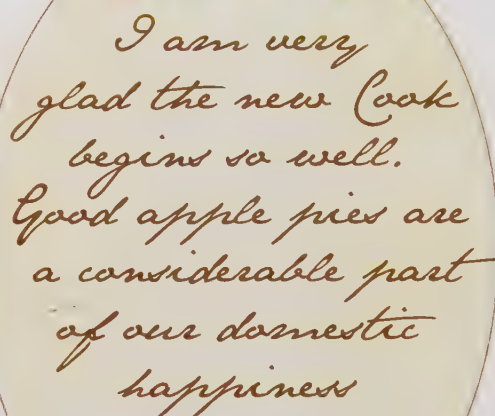 I am very
glad the new Cook
begins so well.
Good apple pies are
a considerable part
of our domestic
happiness